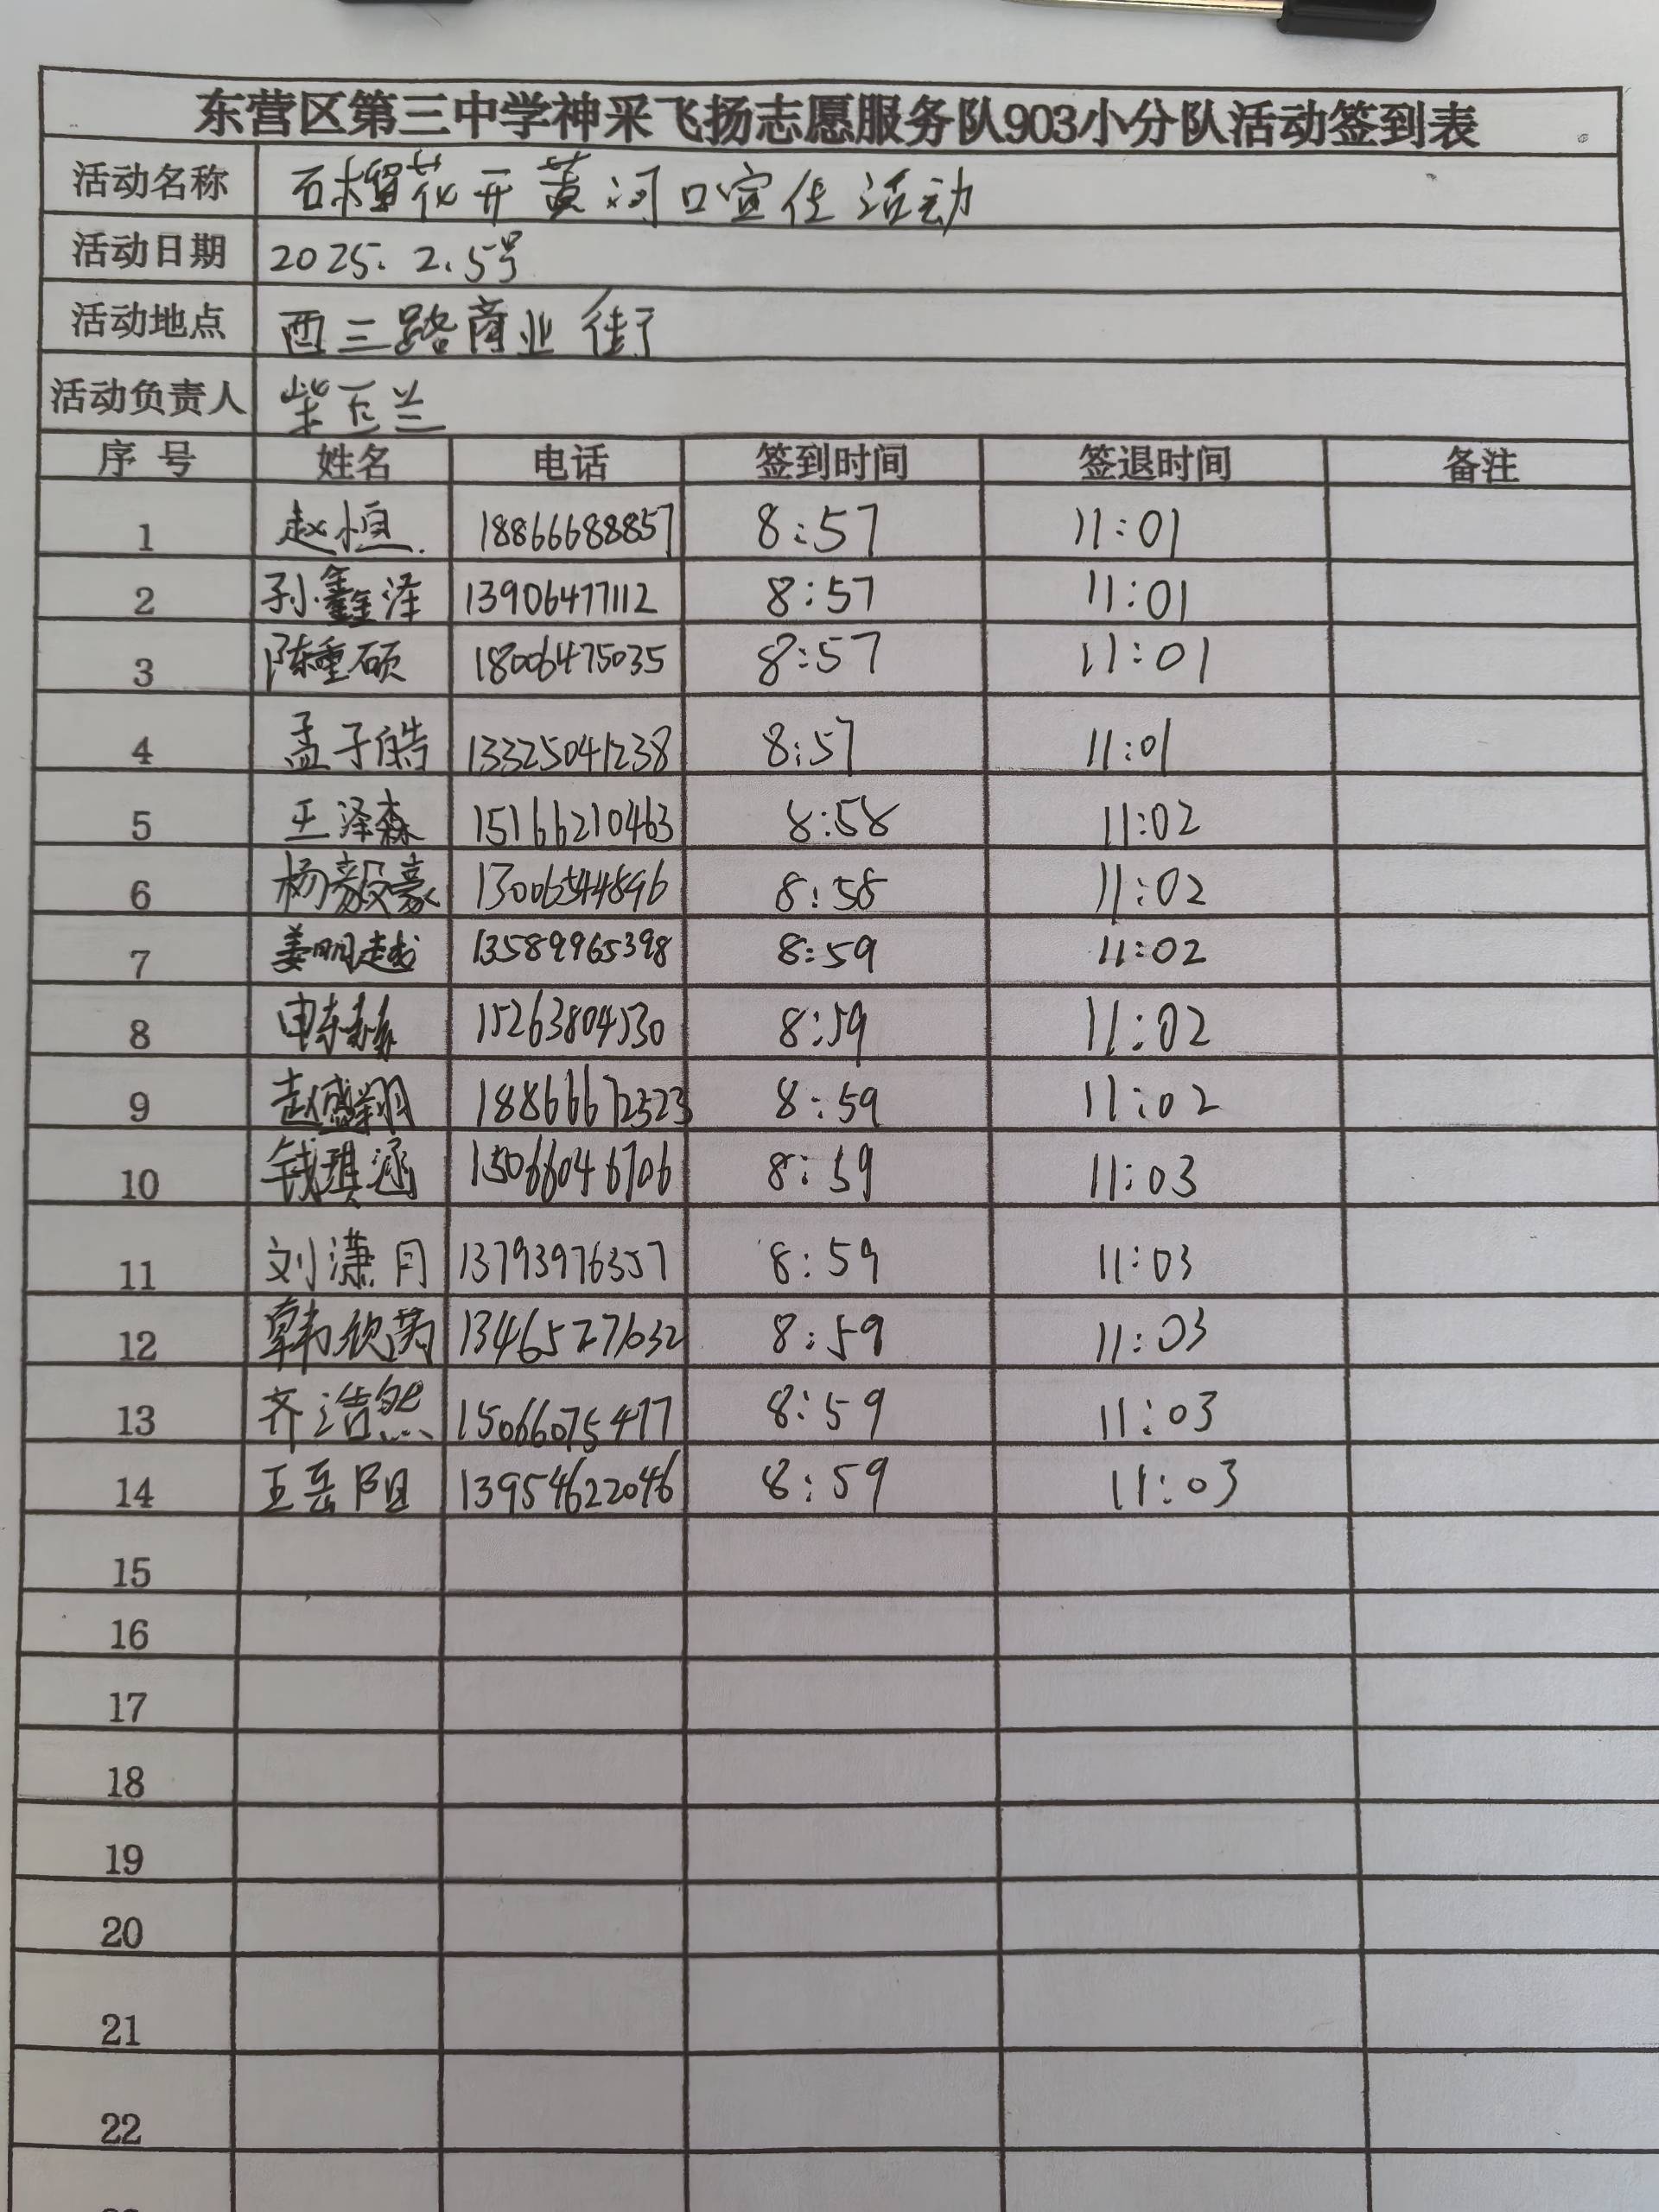 东营区第三中学神采飞扬志愿服务队903小分队活动签到表
活动名称 石榴花开黄河口宣传活动
活动日期 2025.2.5号
活动地点 西三路商业街
活动负责人 柴玉兰
序号 姓名 电话 签到时间 签退时间 备注
1 赵恒 18866688857 8:57 11:01
2 孙鑫泽 13906477112 8:57 11:01
3 陈重硕 18006475035 8:57 11:01
4 孟子皓 13325041238 8:57 11:01
5 王泽森 15166210463 8:58 11:02
6 杨毅豪 13006544896 8:58 11:02
7 姜明越 13589965398 8:59 11:02
8 申东 15263804530 8:59 11:02
9 赵盛翔 18866672523 8:59 11:02
10 钱琪涵 15066046706 8:59 11:03
11 刘潇月 13793976357 8:59 11:03
12 韩欣芮 13465277632 8:59 11:03
13 齐浩然 15066075477 8:59 11:03
14 王岳阳 13954622046 8:59 11:03
15
16
17
18
19
20
21
22